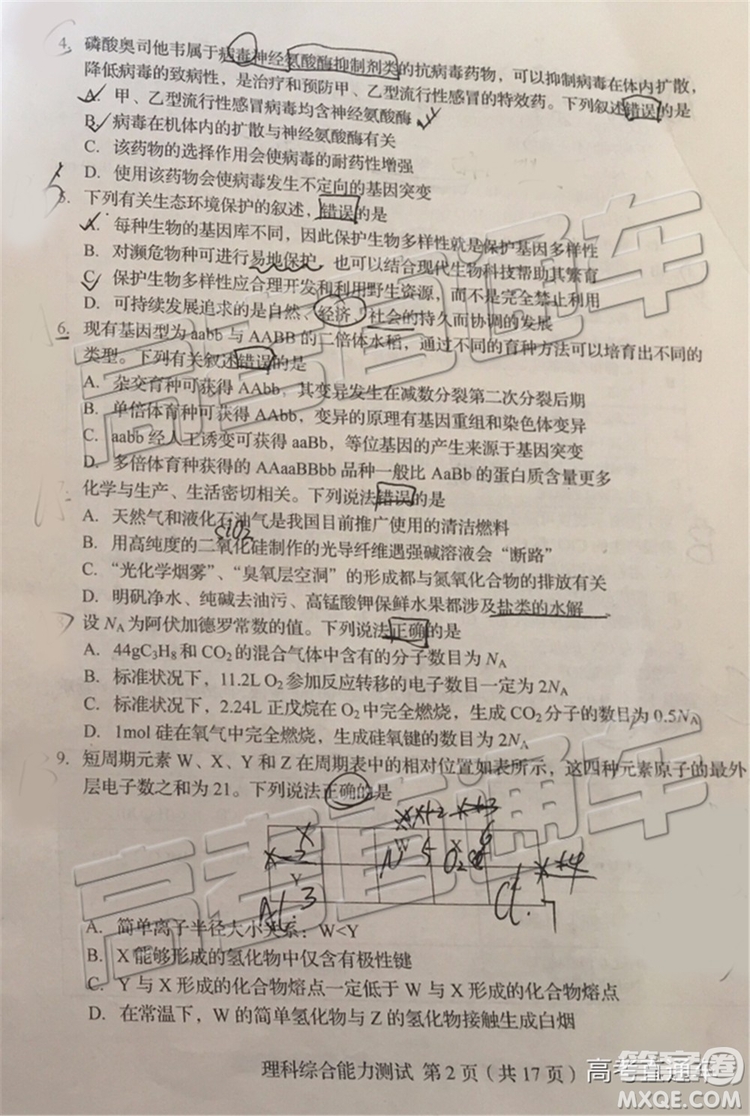 4. 磷酸奥司他韦属于病毒神经氨酸酶抑制剂类的抗病毒药物，可以抑制病毒在体内扩散，
降低病毒的致病性，是治疗和预防甲、乙型流行性感冒的特效药。下列叙述错误的是
A. 甲、乙型流行性感冒病毒均含神经氨酸酶
B. 病毒在机体内的扩散与神经氨酸酶有关
C. 该药物的选择作用会使病毒的耐药性增强
D. 使用该药物会使病毒发生不定向的基因突变
5. 下列有关生态环境保护的叙述，错误的是
A. 每种生物的基因库不同，因此保护生物多样性就是保护基因多样性
B. 对濒危物种可进行易地保护，也可以结合现代生物科技帮助其繁育
C. 保护生物多样性应合理开发和利用野生资源，而不是完全禁止利用
D. 可持续发展追求的是自然、经济、社会的持久而协调的发展
6. 现有基因型为 aabb 与 AABB 的二倍体水稻，通过不同的育种方法可以培育出不同的
类型。下列有关叙述错误的是
A. 杂交育种可获得 AAbb，其变异发生在减数分裂第二次分裂后期
B. 单倍体育种可获得 AAbb，变异的原理有基因重组和染色体变异
C. aabb 经人工诱变可获得 aaBb，等位基因的产生来源于基因突变
D. 多倍体育种获得的 AAaaBBbb 品种一般比 AaBb 的蛋白质含量更多
化学与生产、生活密切相关。下列说法错误的是
A. 天然气和液化石油气是我国目前推广使用的清洁燃料
SiO2
B. 用高纯度的二氧化硅制作的光导纤维遇强碱溶液会“断路”
C. “光化学烟雾”、“臭氧层空洞”的形成都与氮氧化合物的排放有关
D. 明矾净水、纯碱去油污、高锰酸钾保鲜水果都涉及盐类的水解
设 NA为阿伏加德罗常数的值。下列说法正确的是
A. 44gC3H8 和 CO2 的混合气体中含有的分子数目为 NA
B. 标准状况下，11.2L O2 参加反应转移的电子数目一定为 2NA
C. 标准状况下，2.24L 正戊烷在 O2 中完全燃烧，生成 CO2 分子的数目为 0.5NA
D. 1mol 硅在氧气中完全燃烧，生成硅氧键的数目为 2NA
9. 短周期元素 W、X、Y 和 Z 在周期表中的相对位置如表所示，这四种元素原子的最外
层电子数之和为 21。下列说法正确的是
x+2 x+3
X W X 6
x-2 N 5 O x+4
Y
Al 3 Cl 7
A. 简单离子半径大小关系：W<Y
B. X 能够形成的氢化物中仅含有极性键
C. Y 与 X 形成的化合物熔点一定低于 W 与 X 形成的化合物熔点
D. 在常温下，W 的简单氢化物与 Z 的氢化物接触生成白烟
理科综合能力测试 第 2 页（共 17 页）
高考直通车
高考直通车
高考直通车
答案圈
MXQE.COM